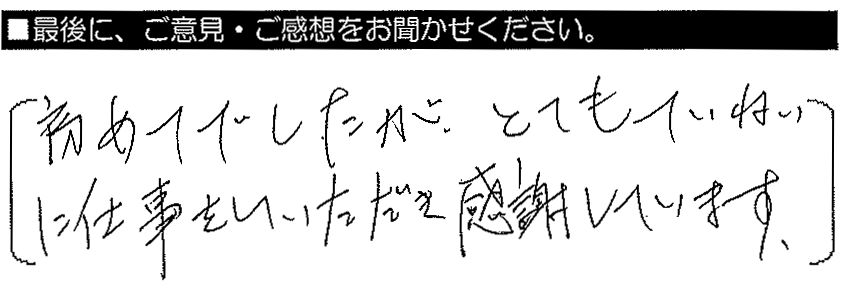 ■最後に、ご意見・ご感想をお聞かせください。
初めてでしたが、とてもていねい
に仕事をしていただき感謝しています、